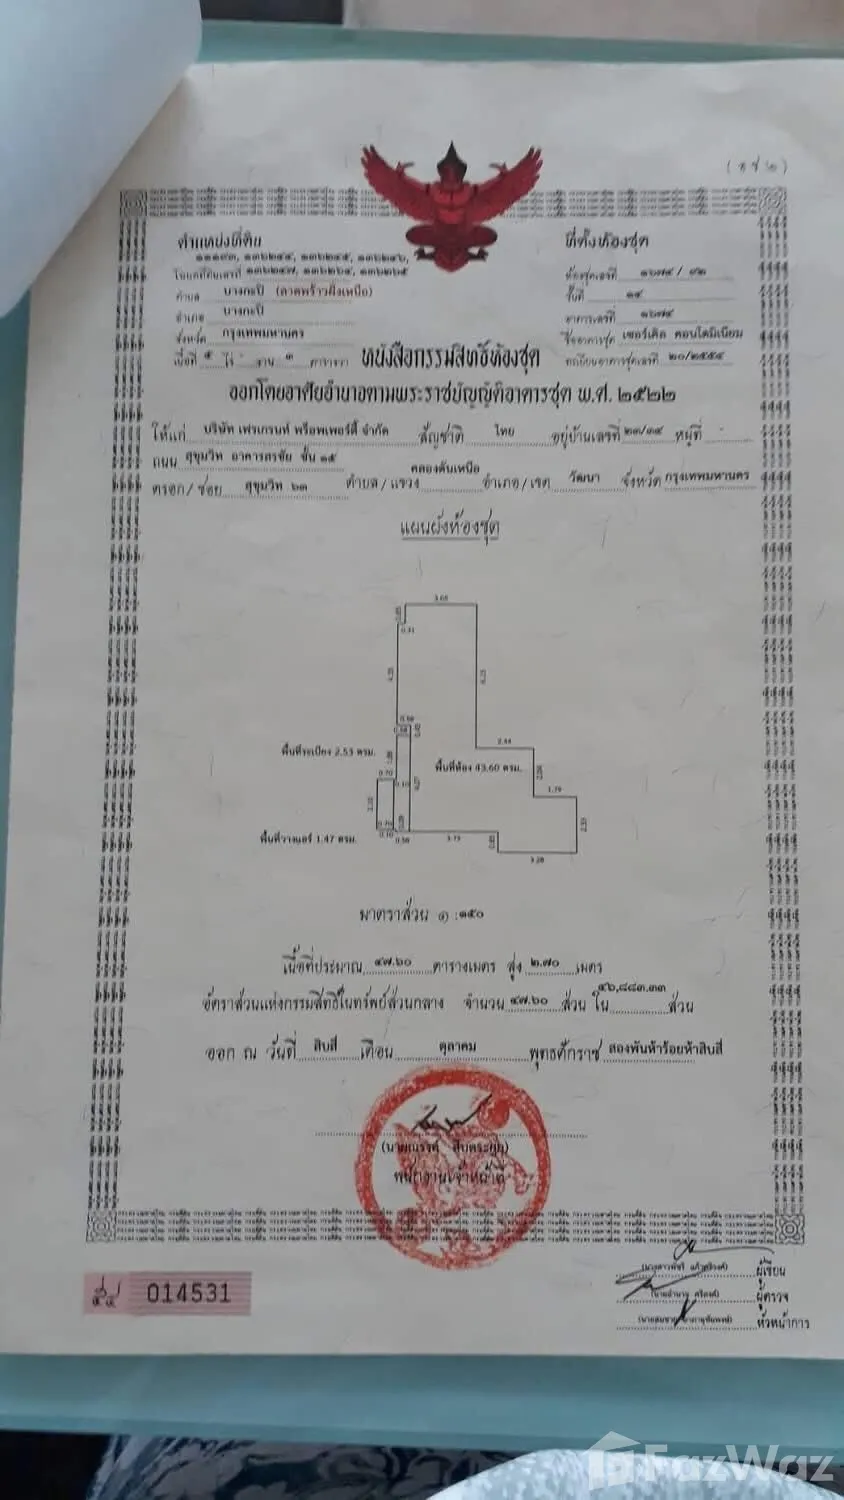 (อช ๒)
ตำแหน่งที่ดิน
ที่ตั้งห้องชุด
๑๑๑๙๓, ๑๓๖๒๔๔, ๑๓๖๒๔๕, ๑๓๖๒๔๖,
โฉนดที่ดินเลขที่ ๑๓๖๒๔๗, ๑๓๖๒๖๔, ๑๓๖๒๖๕
ห้องชุดเลขที่ ๑๖๗๔ / ๙๒
ตำบล บางกะปิ (ลาดพร้าวฝั่งเหนือ)
ชั้นที่ ๑๔
อำเภอ บางกะปิ
อาคารเลขที่ ๑๖๗๔
จังหวัด กรุงเทพมหานคร
ชื่ออาคารชุด เซอร์เคิล คอนโดมิเนียม
เนื้อที่ ๕ ไร่ - งาน ๓ ตารางวา
หนังสือกรรมสิทธิ์ห้องชุด
ทะเบียนอาคารชุดเลขที่ ๒๐/๒๕๕๔
ออกโดยอาศัยอำนาจตามพระราชบัญญัติอาคารชุด พ.ศ. ๒๕๒๒
ให้แก่ บริษัท เฟรเกรนท์ พร็อพเพอร์ตี้ จำกัด สัญชาติ ไทย อยู่บ้านเลขที่ ๒๓/๑๔ หมู่ที่ -
ถนน สุขุมวิท อาคารสรชัย ชั้น ๑๕
ตรอก/ซอย สุขุมวิท ๖๓ ตำบล/แขวง คลองตันเหนือ อำเภอ/เขต วัฒนา จังหวัด กรุงเทพมหานคร
แผนผังห้องชุด
3.65
0.85
0.41
4.25
2.44
พื้นที่ระเบียง 2.53 ตรม.
พื้นที่ห้อง 43.60 ตรม.
2.04
1.79
2.33
พื้นที่วางแอร์ 1.47 ตรม.
3.28
มาตราส่วน ๑ : ๑๕๐
เนื้อที่ประมาณ ๔๗.๖๐ ตารางเมตร สูง ๒.๗๐ เมตร
อัตราส่วนแห่งกรรมสิทธิ์ในทรัพย์ส่วนกลาง จำนวน ๔๗.๖๐ ส่วน ใน ๔๖,๘๘๓.๓๓ ส่วน
ออก ณ วันที่ สิบสี่ เดือน ตุลาคม พุทธศักราช สองพันห้าร้อยห้าสิบสี่
พนักงานเจ้าหน้าที่
014531
ผู้เขียน
ผู้ตรวจ
หัวหน้าการ
FazWaz